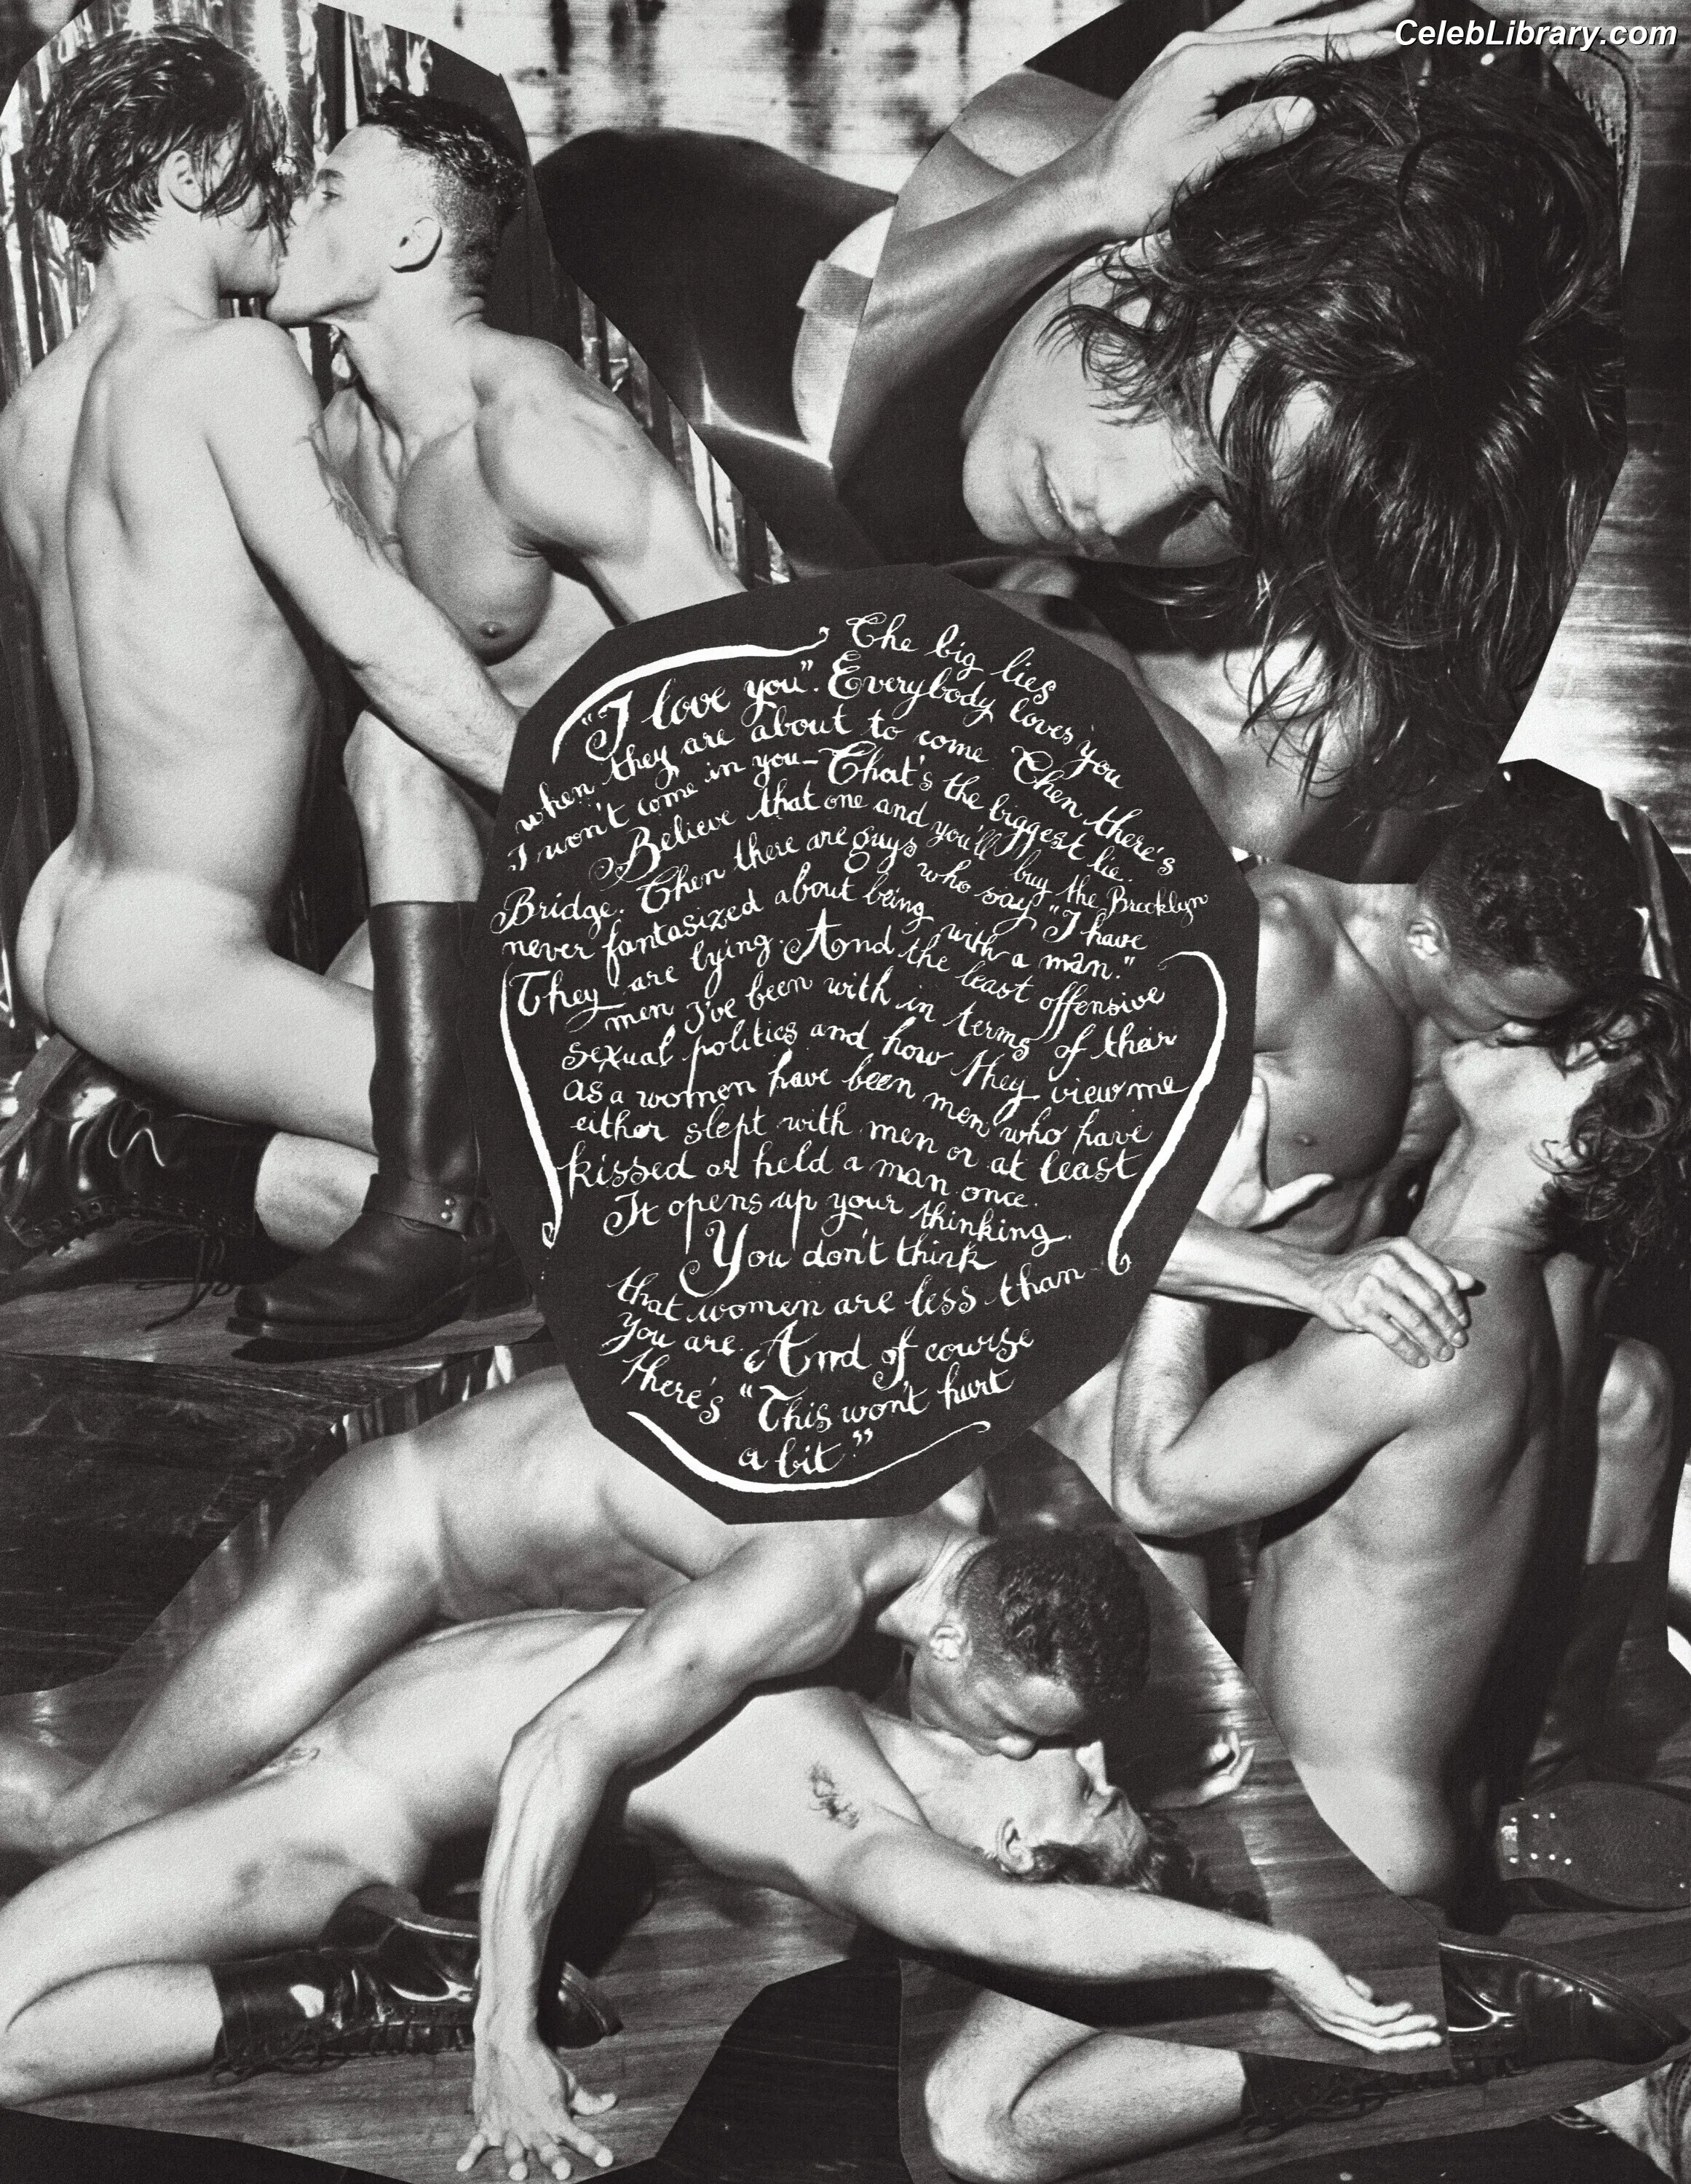 CelebLibrary.com
The big lies
"I love you". Everybody loves you
when they are about to come. Then there's
I won't come in you— That's the biggest lie.
Believe that one and you'll buy the Brooklyn
Bridge. Then there are guys who say "I have
never fantasized about being with a man."
They are lying. And the least offensive
men I've been with in terms of their
sexual politics and how they view me
as a women have been men who have
either slept with men or at least
kissed or held a man once.
It opens up your thinking.
You don't think
that women are less than
you are. And of course
there's "This won't hurt
a bit."